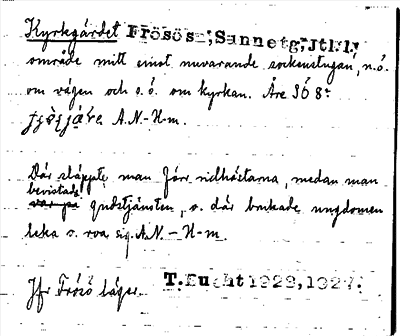 Kyrkgärdet Frösö s:n, Sunne tg, Jtl.l.
område mitt emot nuvarande sockenstugan, n.ö.
om vägen och s.ö. om kyrkan. Åre 36 8:
A.N-H-m.
Där släppte man förr ridhästarna, medan man
bevistade
var på gudstjänsten, o. där brukade ungdomen
leka o. roa sig. A.N.-H-m.
Jfr Frösö läger. T.Bucht 1928, 1927.